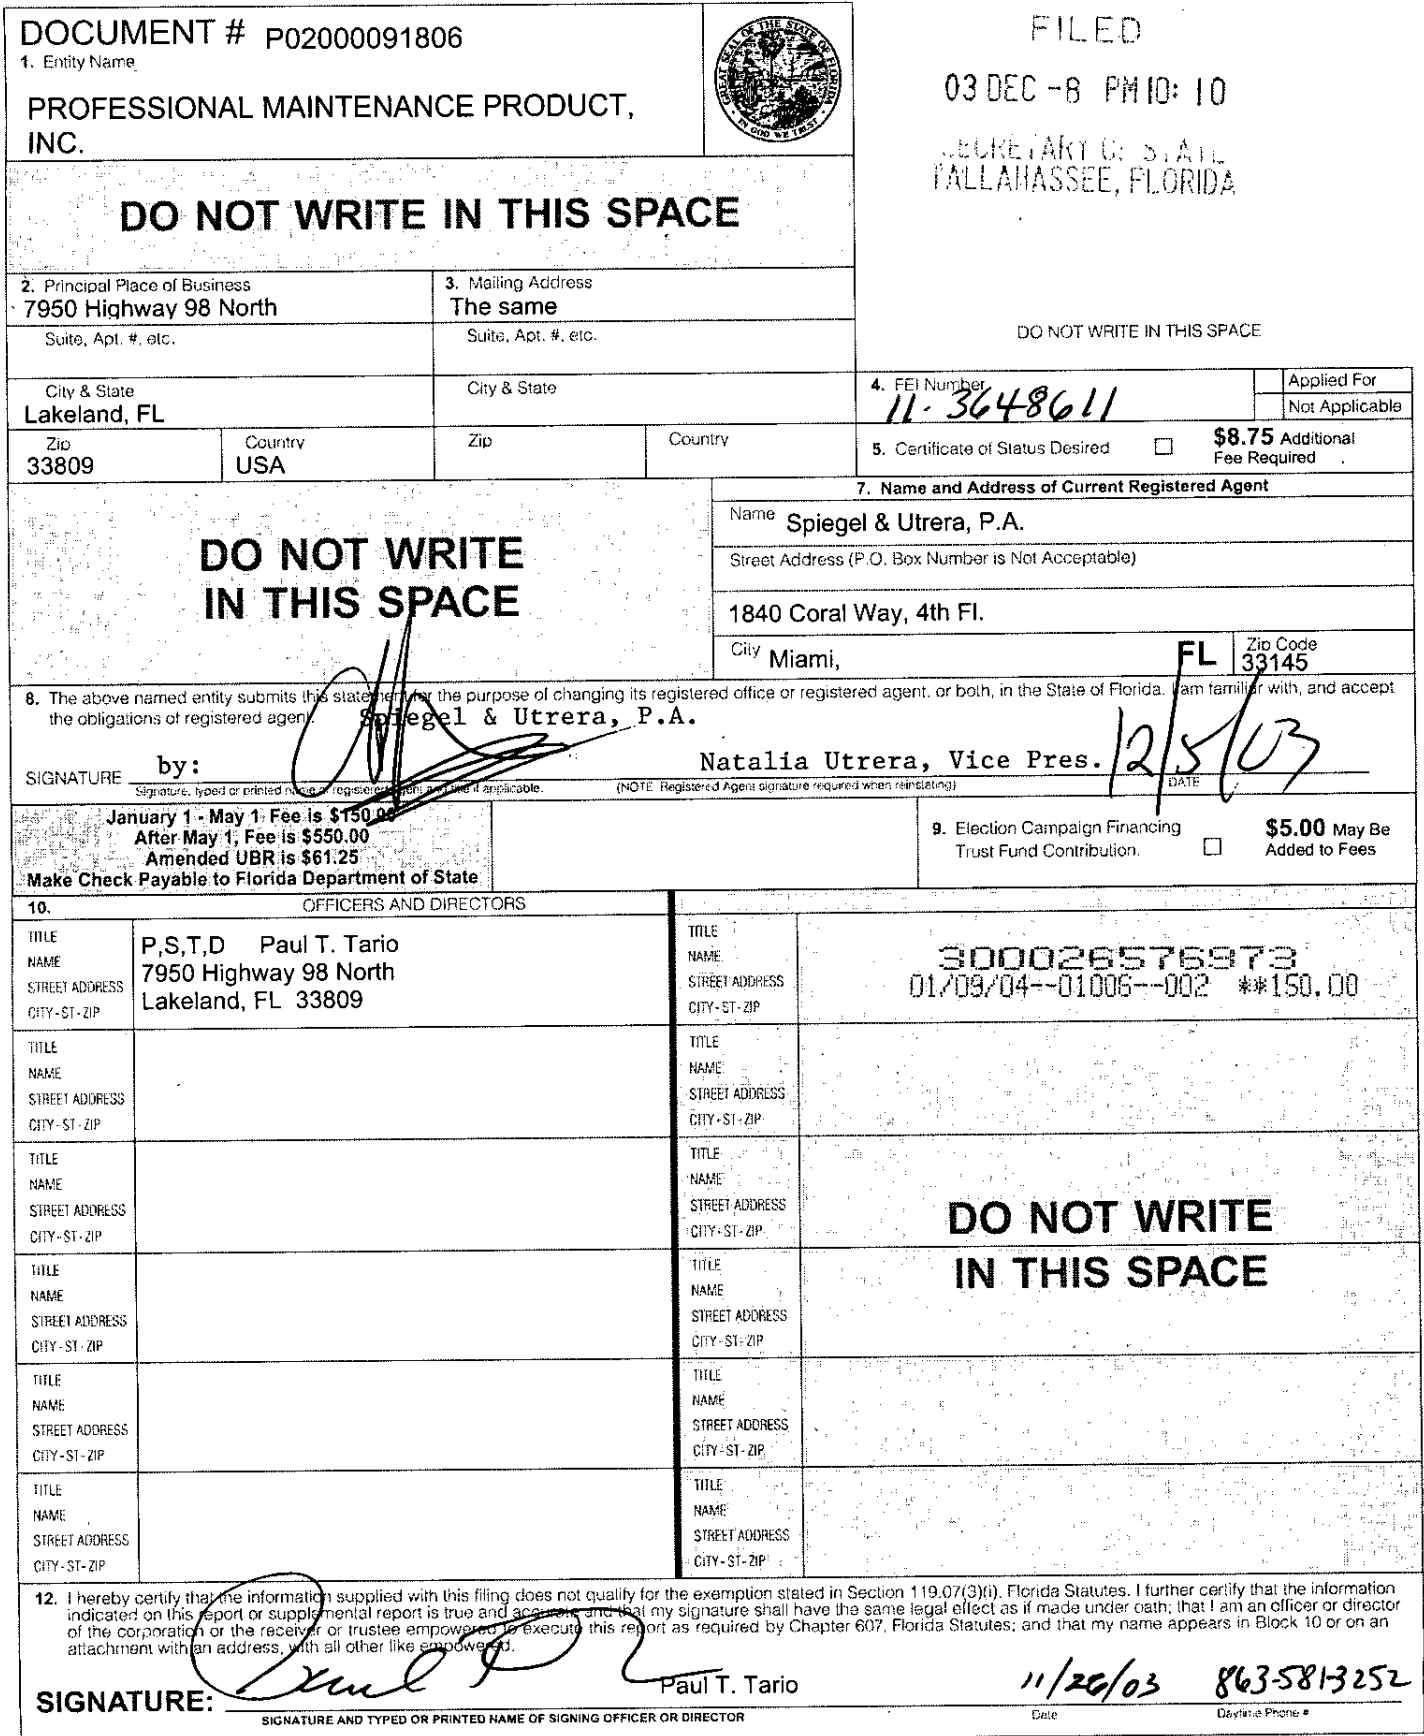 DOCUMENT # P02000091806
1. Entity Name
PROFESSIONAL MAINTENANCE PRODUCT,
INC.
GREAT SEAL OF THE STATE OF FLORIDA
IN GOD WE TRUST
FILED
03 DEC -8 PM 10: 10
SECRETARY OF STATE
TALLAHASSEE, FLORIDA
DO NOT WRITE IN THIS SPACE
2. Principal Place of Business
7950 Highway 98 North
3. Mailing Address
The same
Suite, Apt. #, etc.
Suite, Apt. #, etc.
DO NOT WRITE IN THIS SPACE
City & State
Lakeland, FL
City & State
4. FEI Number
11-3648611
Applied For
Not Applicable
Zip
33809
Country
USA
Zip
Country
5. Certificate of Status Desired
$8.75 Additional
Fee Required
DO NOT WRITE
IN THIS SPACE
7. Name and Address of Current Registered Agent
Name Spiegel & Utrera, P.A.
Street Address (P.O. Box Number is Not Acceptable)
1840 Coral Way, 4th Fl.
City Miami,
FL
Zip Code
33145
8. The above named entity submits this statement for the purpose of changing its registered office or registered agent, or both, in the State of Florida. I am familiar with, and accept
the obligations of registered agent.
Spiegel & Utrera, P.A.
SIGNATURE by:
Natalia Utrera, Vice Pres. 12/5/03
Signature, typed or printed name of registered agent and title if applicable.
(NOTE Registered Agent signature required when reinstating)
DATE
January 1 - May 1 Fee is $150.00
After May 1, Fee is $550.00
Amended UBR is $61.25
Make Check Payable to Florida Department of State
9. Election Campaign Financing
Trust Fund Contribution.
$5.00 May Be
Added to Fees
10. OFFICERS AND DIRECTORS
TITLE
NAME
STREET ADDRESS
CITY-ST-ZIP
P,S,T,D Paul T. Tario
7950 Highway 98 North
Lakeland, FL 33809
TITLE
NAME
STREET ADDRESS
CITY-ST-ZIP
300026576973
01/09/04--01006--002 **150.00
TITLE
NAME
STREET ADDRESS
CITY-ST-ZIP
TITLE
NAME
STREET ADDRESS
CITY-ST-ZIP
TITLE
NAME
STREET ADDRESS
CITY-ST-ZIP
TITLE
NAME
STREET ADDRESS
CITY-ST-ZIP
DO NOT WRITE
IN THIS SPACE
TITLE
NAME
STREET ADDRESS
CITY-ST-ZIP
TITLE
NAME
STREET ADDRESS
CITY-ST-ZIP
TITLE
NAME
STREET ADDRESS
CITY-ST-ZIP
TITLE
NAME
STREET ADDRESS
CITY-ST-ZIP
TITLE
NAME
STREET ADDRESS
CITY-ST-ZIP
TITLE
NAME
STREET ADDRESS
CITY-ST-ZIP
12. I hereby certify that the information supplied with this filing does not qualify for the exemption stated in Section 119.07(3)(i), Florida Statutes. I further certify that the information
indicated on this report or supplemental report is true and accurate and that my signature shall have the same legal effect as if made under oath; that I am an officer or director
of the corporation or the receiver or trustee empowered to execute this report as required by Chapter 607, Florida Statutes; and that my name appears in Block 10 or on an
attachment with an address, with all other like empowered.
SIGNATURE:
Paul T. Tario
11/26/03
863-581-3252
SIGNATURE AND TYPED OR PRINTED NAME OF SIGNING OFFICER OR DIRECTOR
Date
Daytime Phone #